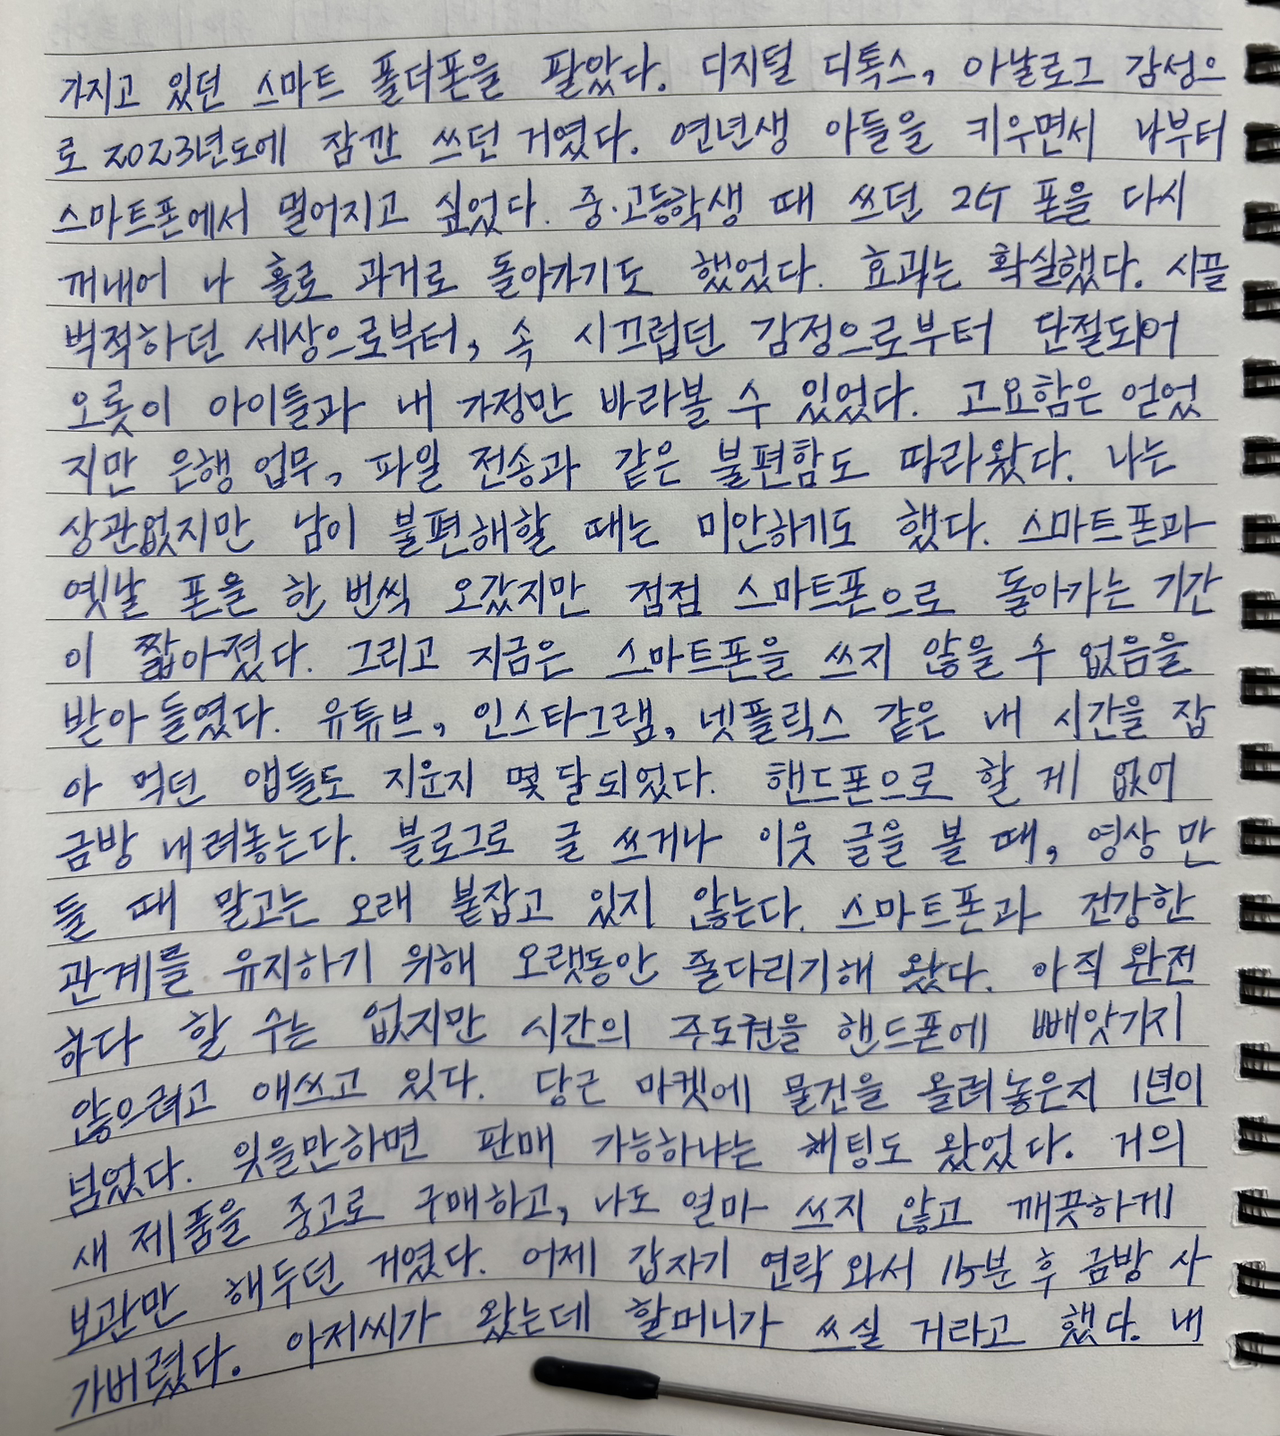 가지고 있던 스마트 폴더폰을 팔았다. 디지털 디톡스, 아날로그 감성으
로 2023년도에 잠깐 쓰던 거였다. 연년생 아들을 키우면서 나부터
스마트폰에서 멀어지고 싶었다. 중·고등학생 때 쓰던 2G 폰을 다시
꺼내어 나 홀로 과거로 돌아가기도 했었다. 효과는 확실했다. 시끌
벅적하던 세상으로부터, 속 시끄럽던 감정으로부터 단절되어
오롯이 아이들과 내 가정만 바라볼 수 있었다. 고요함은 얻었
지만 은행 업무, 파일 전송과 같은 불편함도 따라왔다. 나는
상관없지만 남이 불편해할 때는 미안하기도 했다. 스마트폰과
옛날 폰을 한 번씩 오갔지만 점점 스마트폰으로 돌아가는 기간
이 짧아졌다. 그리고 지금은 스마트폰을 쓰지 않을 수 없음을
받아들였다. 유튜브, 인스타그램, 넷플릭스 같은 내 시간을 잡
아 먹던 앱들도 지운지 몇 달 되었다. 핸드폰으로 할 게 없어
금방 내려놓는다. 블로그로 글 쓰거나 이웃 글을 볼 때, 영상 만
들 때 말고는 오래 붙잡고 있지 않는다. 스마트폰과 건강한
관계를 유지하기 위해 오랫동안 줄다리기해 왔다. 아직 완전
하다 할 수는 없지만 시간의 주도권을 핸드폰에 빼앗기지
않으려고 애쓰고 있다. 당근 마켓에 물건을 올려놓은지 1년이
넘었다. 잊을만하면 판매 가능하냐는 채팅도 왔었다. 거의
새 제품을 중고로 구매하고, 나도 얼마 쓰지 않고 깨끗하게
보관만 해두던 거였다. 어제 갑자기 연락 와서 15분 후 금방 사
가버렸다. 아저씨가 왔는데 할머니가 쓰실 거라고 했다. 내